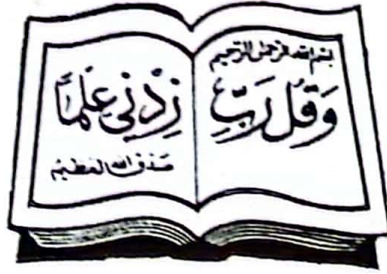 بسم الله الرحمن الرحيم
وَقُل رَبِّ
زِدْنِي عِلْمًا
صدق الله العظيم